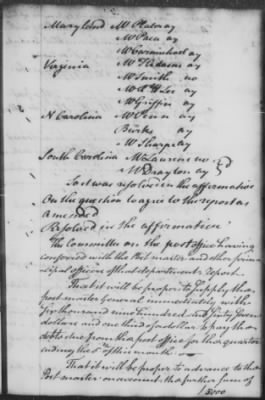 Maryland Mr Plater ay
Mr Paca ay
Mr Carmichael ay
Virginia Mr T Adams ay
Mr Smith no
Mr Lee ay
Mr Griffin ay
N Carolina Mr Penn ay
Burke ay
Mr Sharpe ay
South Carolina Mr Laurens no
Mr Drayton ay
So it was resolved in the affirmative
On the question to agree to the report as
amended
Resolved in the affirmative
The Committee on the post office having
conferred with the Post master and other prin-
cipal officers of that department report
That it will be proper to supply the
post master General immediately with
six thousand nine hundred and sixty seven
dollars and one third of a dollar to pay the
debts due from the post office for the quarter
ending the of this month
That it will be proper to advance to the
Post master on account the further sum of
5000